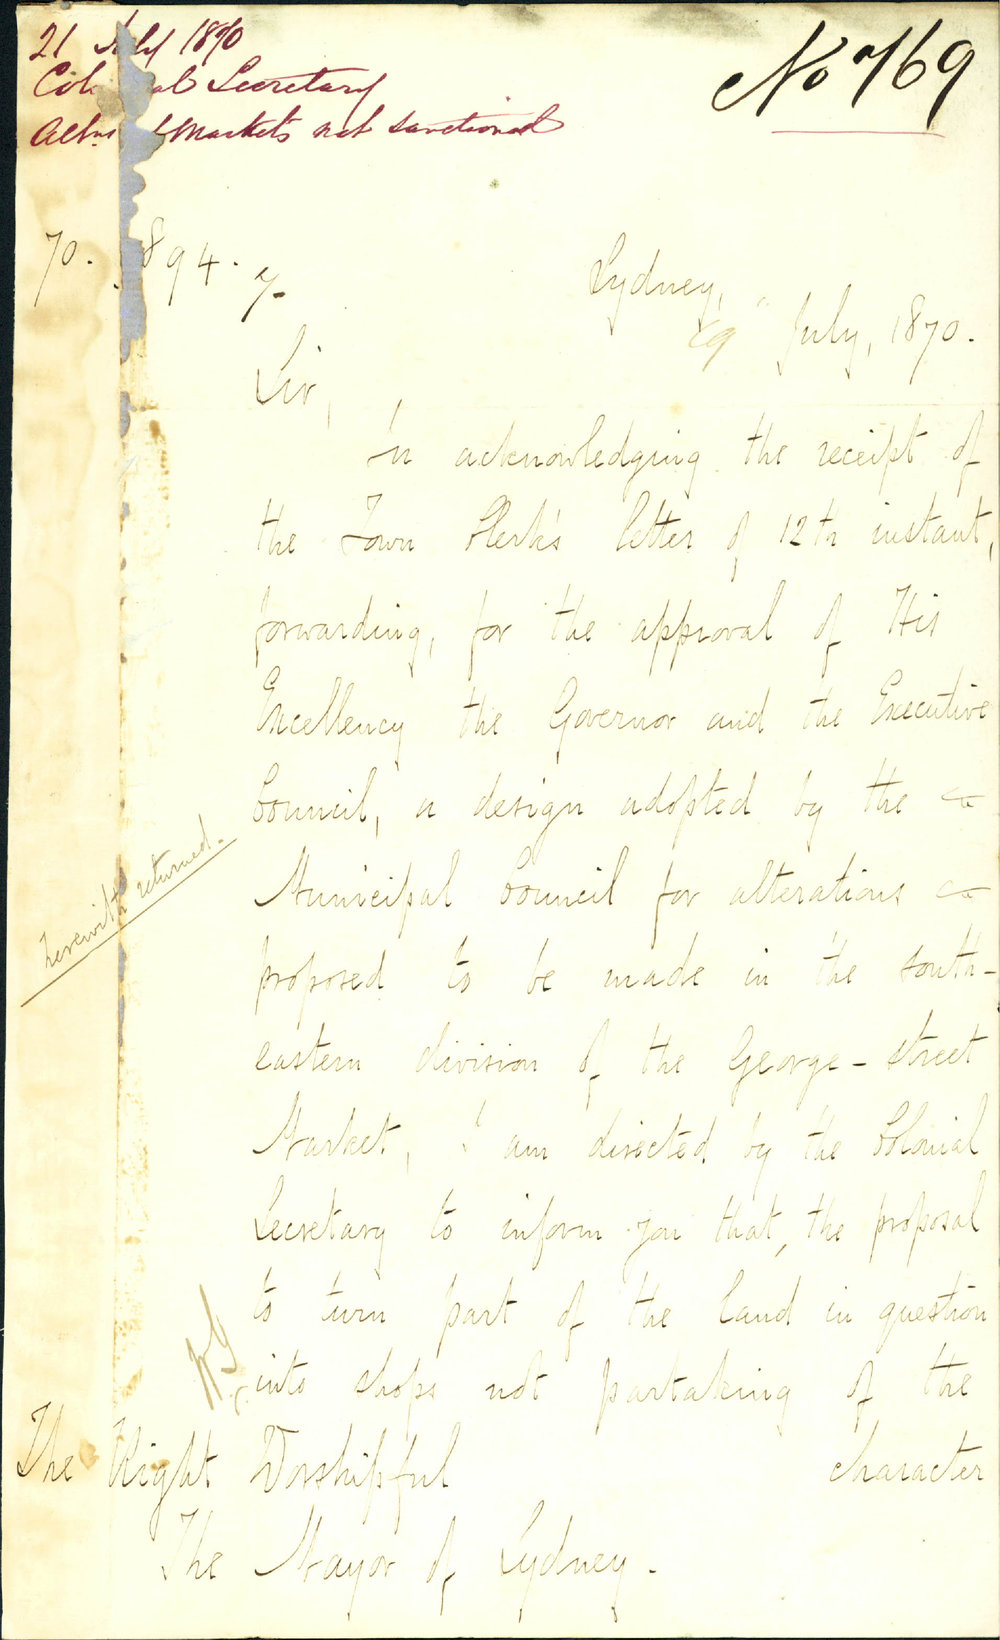 21 July 1870
Colonial Secretary
Altns of Markets not sanctioned
No 769
70. 894. 7-
Sydney,
19 July, 1870.
Sir,
In acknowledging the receipt of
the Town Clerk's letter of 12th instant,
forwarding, for the approval of His
Excellency the Governor and the Executive
Council, a design adopted by the
herewith returned.
Municipal Council for alterations
proposed to be made in the south-
eastern division of the George-street
Market, I am directed by the Colonial
Secretary to inform you that, the proposal
to turn part of the land in question
into shops not partaking of the
character
The Right Worshipful
The Mayor of Sydney.